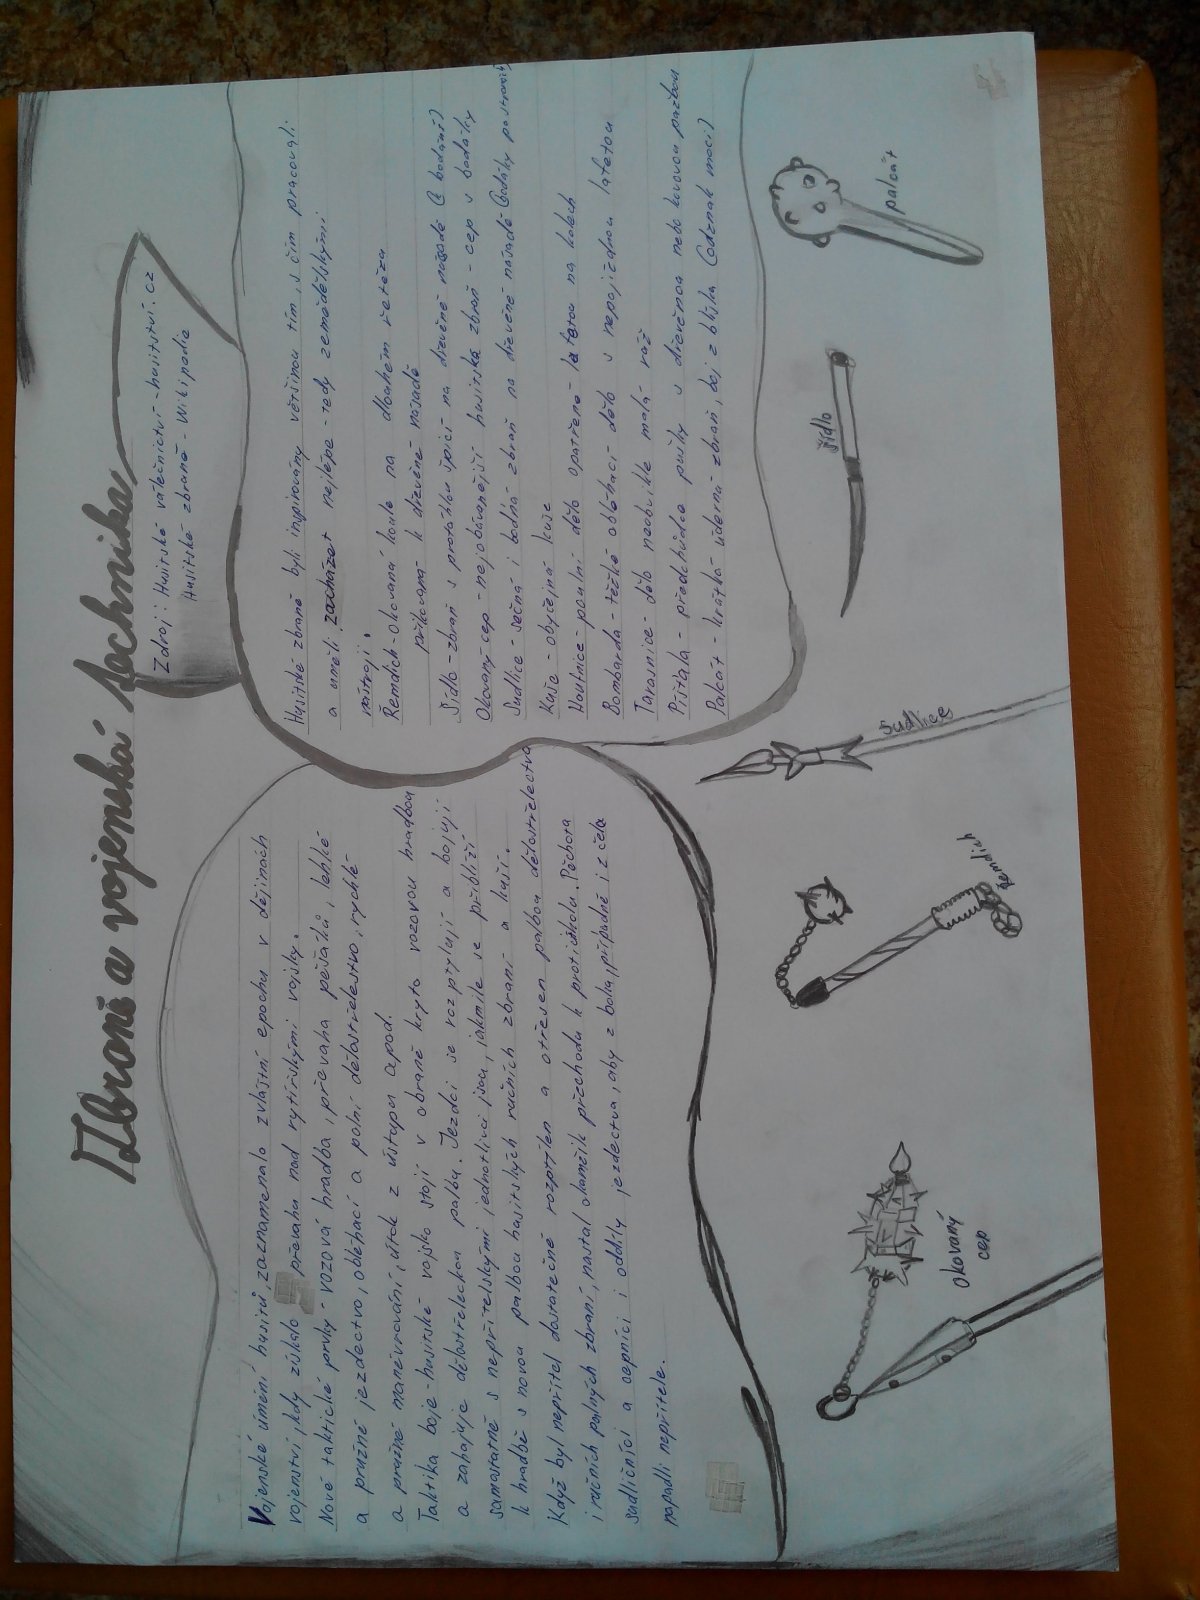 Zbraně a vojenská technika
Zdroj: Husitské válečnictví - husitství.cz
Husitské zbraně - Wikipedie
Vojenské umění husitů, zaznamenalo zvláštní epochu v dějinách
vojenství, kdy získalo převahu nad rytířskými vojsky.
Nové taktické prvky - vozová hradba, převaha pěšáků, lehké
a pružné jezdectvo, obléhací a polní dělostřelectvo, rychlé
a pružné manévrování, útok z ústupu apod.
Taktika boje - husitské vojsko stojí v obraně kryto vozovou hradbou
a zahajuje dělostřeleckou palbu. Jezdci se rozptylují a bojují
samostatně s nepřátelskými jednotlivci jsou, jakmile se přiblíží
k hradbě s novou palbou husitských ručních zbraní a kuší.
Když byl nepřítel dostatečně rozptýlen a otřesen palbou dělostřelectva
i ručních palných zbraní, nastal okamžik přechodu k protiútoku. Pěchota
sudličníci a cepníci i oddíly jezdectva, aby z boku, případně i z čela
napadli nepřítele.
Husitské zbraně byli inspirovány většinou tím, s čím pracovali
a uměli zacházet nejlépe - tedy zemědělskými
nástroji.
Řemdich - okovaná koule na dlouhém řetězu
přikovaná k dřevěné násadě
Šídlo - zbraň s protáhlou špicí na dřevěné násadě (k bodání)
Okovaný cep - nejobávanější husitská zbraň - cep s bodáky
Sudlice - sečná i bodná - zbraň na dřevěné násadě (bodáky po stranách)
Kuše - obyčejná kuše
Houfnice - polní dělo opatřené lafetou na kolech
Bombarda - těžké obléhací dělo s nepojízdnou lafetou
Tarasnice - dělo neobvikle malá ráž
Píšťala - předchůdce pušky s dřevěnou nebo kovovou pažbou
Palcát - krátká úderná zbraň, boj z blízka (odznak moci)
okovaný
cep
řemdich
sudlice
šídlo
palcát